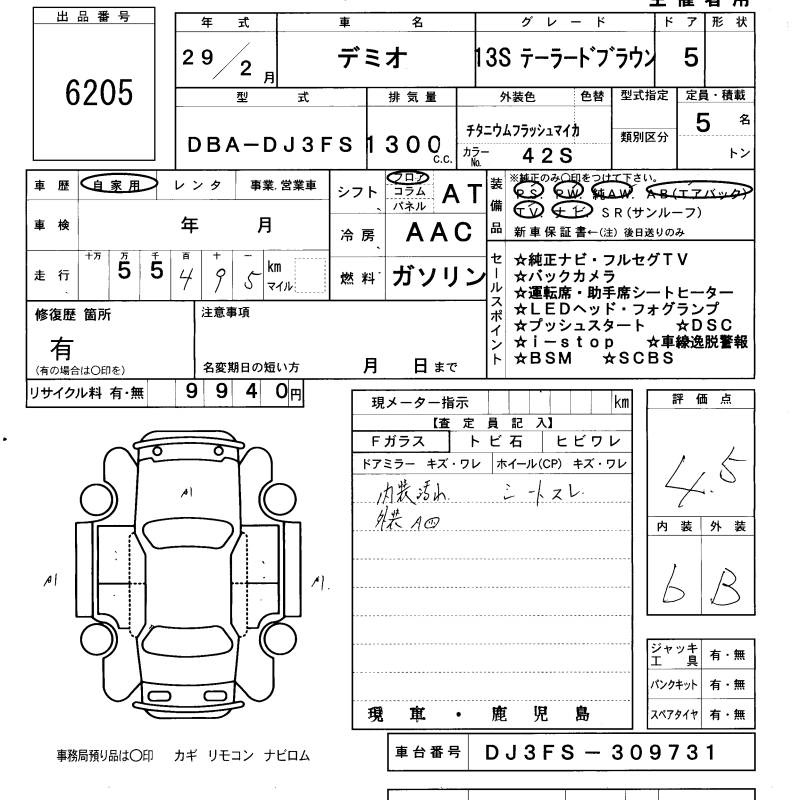 出品番号
6205
年式 車名 グレード ドア 形状
29/2月 デミオ 13S テーラードブラウン 5
型式 排気量 外装色 色替 型式指定 定員・積載
DBA-DJ3FS 1300c.c. チタニウムフラッシュマイカ 5名
カラーNo. 42S 類別区分 トン
車歴 自家用 レンタ 事業.営業車
車検 年 月
走行 十万 万 千 百 十 一
55495 km マイル
シフト フロア コラム パネル AT
冷房 AAC
燃料 ガソリン
装備品
※純正のみ〇印をつけて下さい。
PS. PW. 純AW. AB(エアバック)
TV. ナビ. SR(サンルーフ)
新車保証書←(注) 後日送りのみ
セールスポイント
☆純正ナビ・フルセグTV
☆バックカメラ
☆運転席・助手席シートヒーター
☆LEDヘッド・フォグランプ
☆プッシュスタート ☆DSC
☆i-stop ☆車線逸脱警報
☆BSM ☆SCBS
修復歴 箇所
有
(有の場合は〇印を)
注意事項
名変期日の短い方 月 日まで
リサイクル料 有・無 9940円
現メーター指示 km
【査定員記入】
Fガラス トビ石 ヒビワレ
ドアミラー キズ・ワレ ホイール(CP) キズ・ワレ
内装汚れ シートスレ
外装 A凹
現車・鹿児島
評価点
4.5
内装 外装
b B
ジャッキ工具 有・無
パンクキット 有・無
スペアタイヤ 有・無
A1
A1
A1.
事務局預り品は〇印 カギ リモコン ナビロム
車台番号 DJ3FS-309731